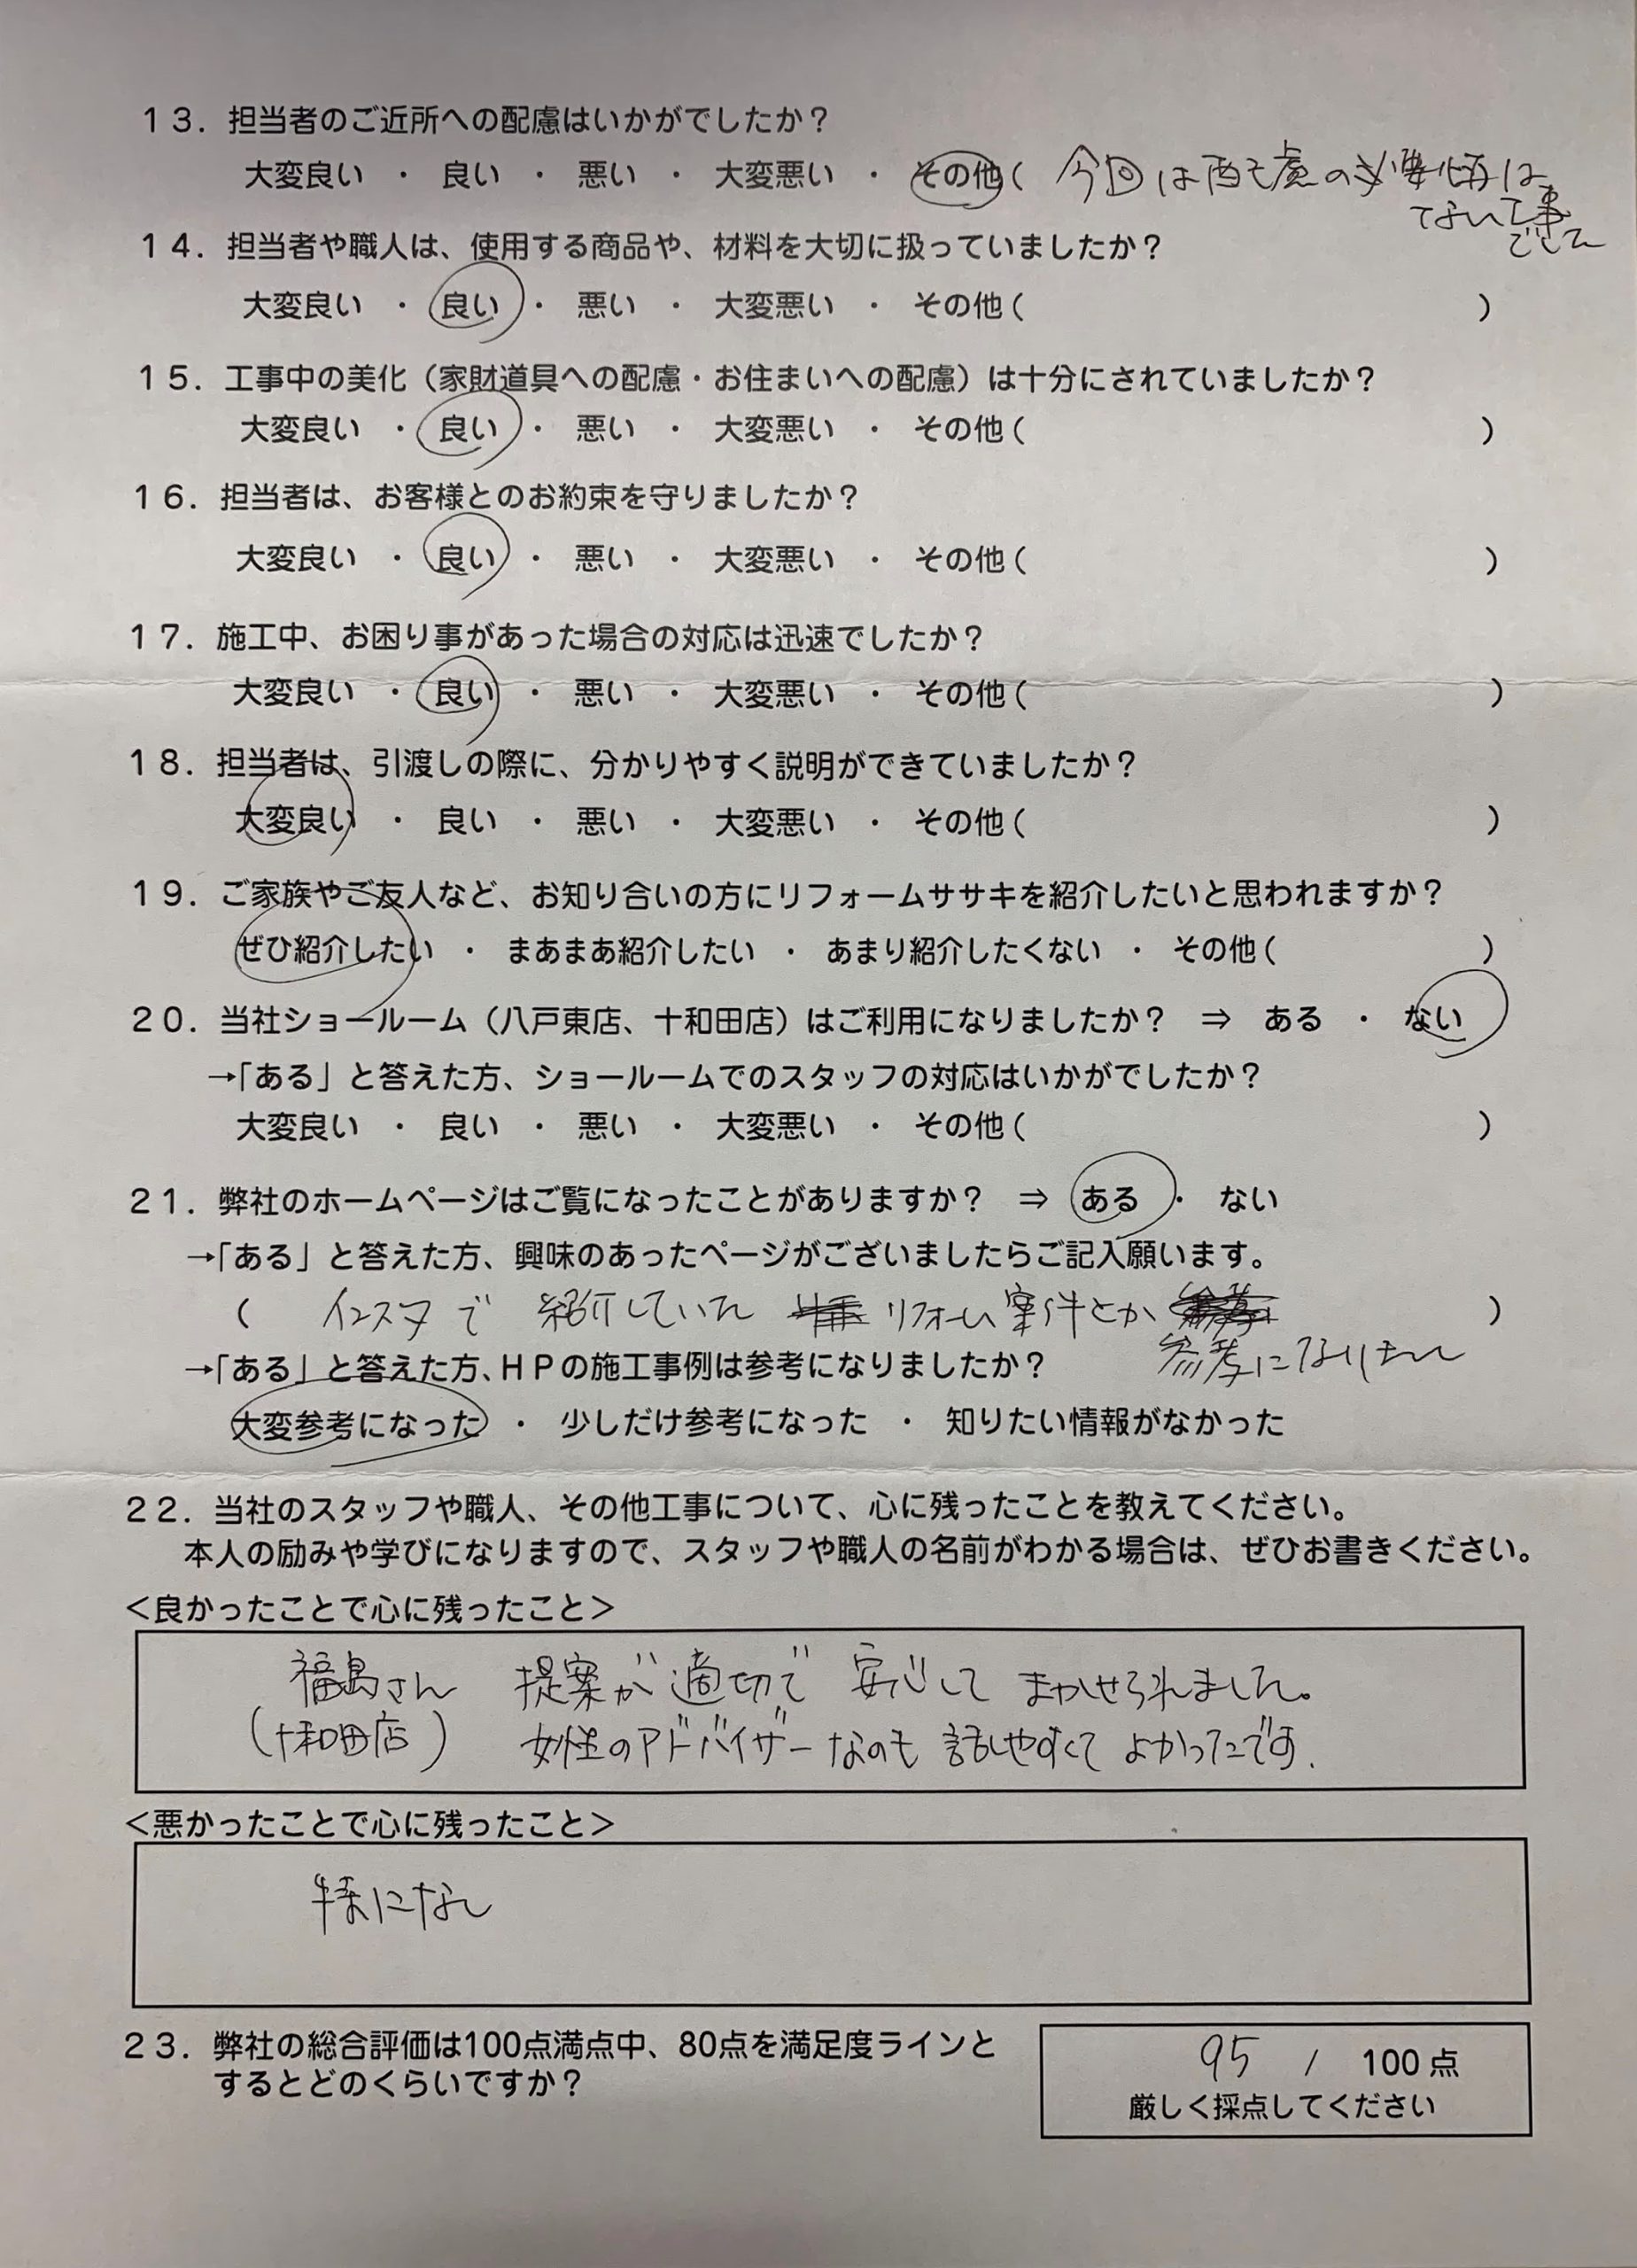 13．担当者のご近所への配慮はいかがでしたか？
大変良い ・ 良い ・ 悪い ・ 大変悪い ・ その他（ 今回は配慮の必要性は
ない工事
でした
14．担当者や職人は、使用する商品や、材料を大切に扱っていましたか？
大変良い ・ 良い ・ 悪い ・ 大変悪い ・ その他（ ）
15．工事中の美化（家財道具への配慮・お住まいへの配慮）は十分にされていましたか？
大変良い ・ 良い ・ 悪い ・ 大変悪い ・ その他（ ）
16．担当者は、お客様とのお約束を守りましたか？
大変良い ・ 良い ・ 悪い ・ 大変悪い ・ その他（ ）
17．施工中、お困り事があった場合の対応は迅速でしたか？
大変良い ・ 良い ・ 悪い ・ 大変悪い ・ その他（ ）
18．担当者は、引渡しの際に、分かりやすく説明ができていましたか？
大変良い ・ 良い ・ 悪い ・ 大変悪い ・ その他（ ）
19．ご家族やご友人など、お知り合いの方にリフォームササキを紹介したいと思われますか？
ぜひ紹介したい ・ まあまあ紹介したい ・ あまり紹介したくない ・ その他（ ）
20．当社ショールーム（八戸東店、十和田店）はご利用になりましたか？ ⇒ ある ・ ない
→「ある」と答えた方、ショールームでのスタッフの対応はいかがでしたか？
大変良い ・ 良い ・ 悪い ・ 大変悪い ・ その他（ ）
21．弊社のホームページはご覧になったことがありますか？ ⇒ ある ・ ない
→「ある」と答えた方、興味のあったページがございましたらご記入願います。
（ インスタで 紹介していた リフォーム案件とか ）
参考になりました
→「ある」と答えた方、ＨＰの施工事例は参考になりましたか？
大変参考になった ・ 少しだけ参考になった ・ 知りたい情報がなかった
22．当社のスタッフや職人、その他工事について、心に残ったことを教えてください。
本人の励みや学びになりますので、スタッフや職人の名前がわかる場合は、ぜひお書きください。
＜良かったことで心に残ったこと＞
福島さん 提案が適切で 安心して まかせられました。
（十和田店） 女性のアドバイザーなのも 話しやすくて よかったです.
＜悪かったことで心に残ったこと＞
特になし
23．弊社の総合評価は100点満点中、80点を満足度ラインと
するとどのくらいですか？
95 / 100点
厳しく採点してください